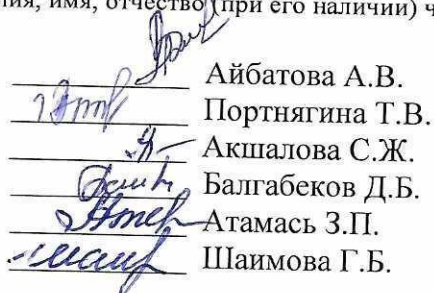 имя, отчество (при его наличии) ч
Айбатова А.В.
Портнягина Т.В.
Акшалова С.Ж.
Балгабеков Д.Б.
Атамась З.П.
Шаимова Г.Б.